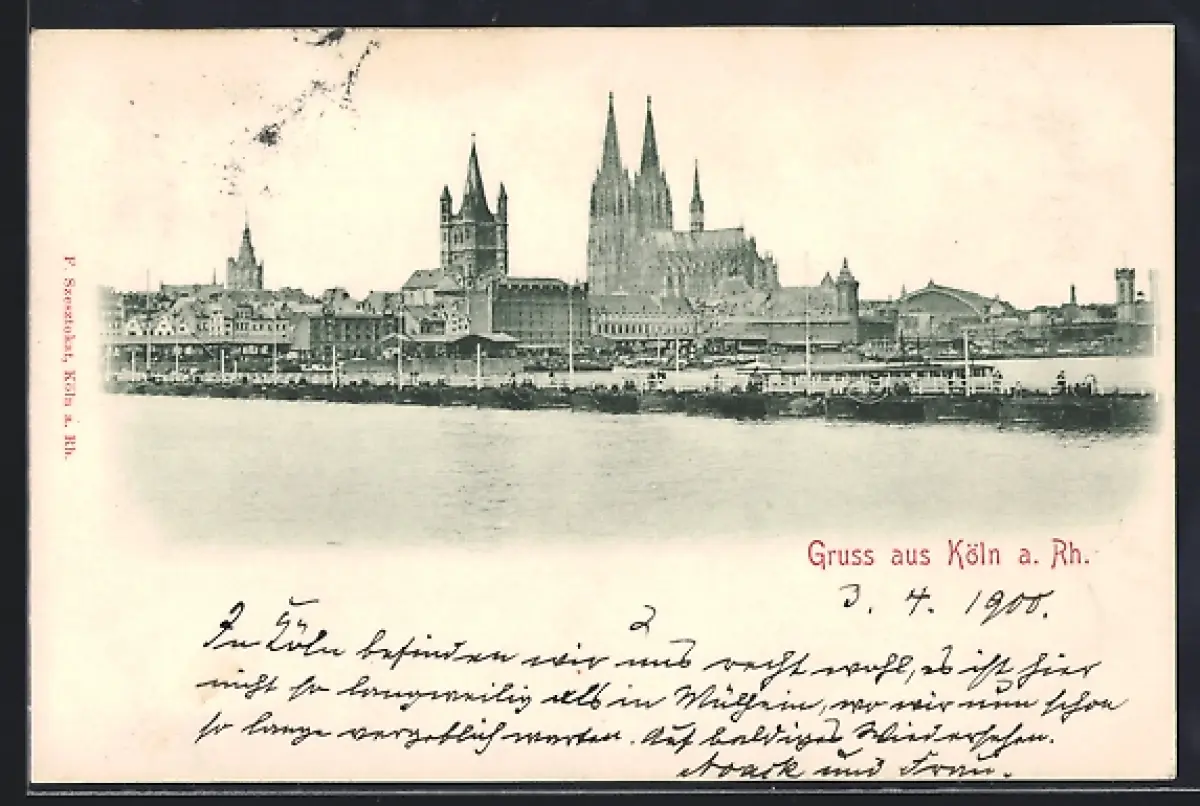 P. Szesztokat, Köln a. Rh.
Gruss aus Köln a. Rh.
3. 4. 1900.
In Köln befinden wir uns recht wohl, es ist hier
nicht so langweilig als in Mülheim, wo wir nun schon
so lange vergeblich warten. Auf baldiges Wiedersehen.
Noack und Frau.